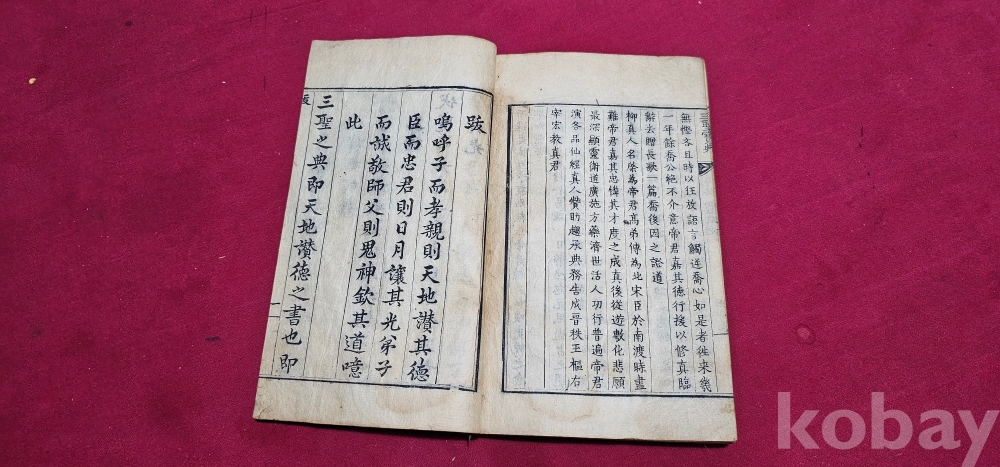 無慳吝且時以狂放語言觸迕喬心如是者往來幾
一年餘喬公絕不介意帝君嘉其德行授以修真臨
辭去贈長歌一篇喬後因之證道
柳真人名棨為帝君高弟傳為北宋臣於南渡時盡
難帝君嘉其忠憐其才度之成真後從遊敷化悲願
最深顯靈衛道廣施方藥濟世活人功行普遍帝君
演各品仙經真人贊助趨承典務告成晉秩玉樞右
宰宏教真君
跋
嗚呼子而孝親則天地讚其德
臣而忠君則日月讓其光弟子
而誠敬師父則鬼神欽其道噫
此
三聖之典即天地讚德之書也即
跋
一
kobay